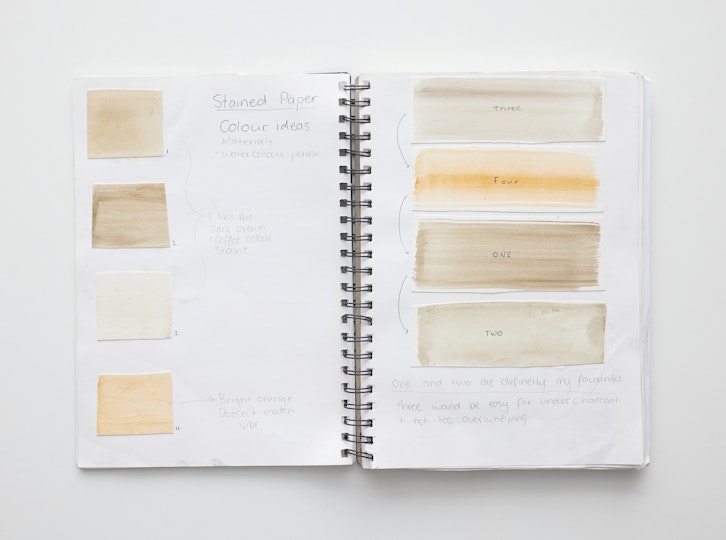 Stained Paper
Colour ideas
Materials
- watercolour paint
1.
2.
I like the
Dark brown
/ coffee colour
Staint
3.
4.
Bright orange
Doesn't match
vibe
Three
Four
ONE
TWO
One and two are definetly my favourites
three would be easy for under charcoal
+ not too overwhelming